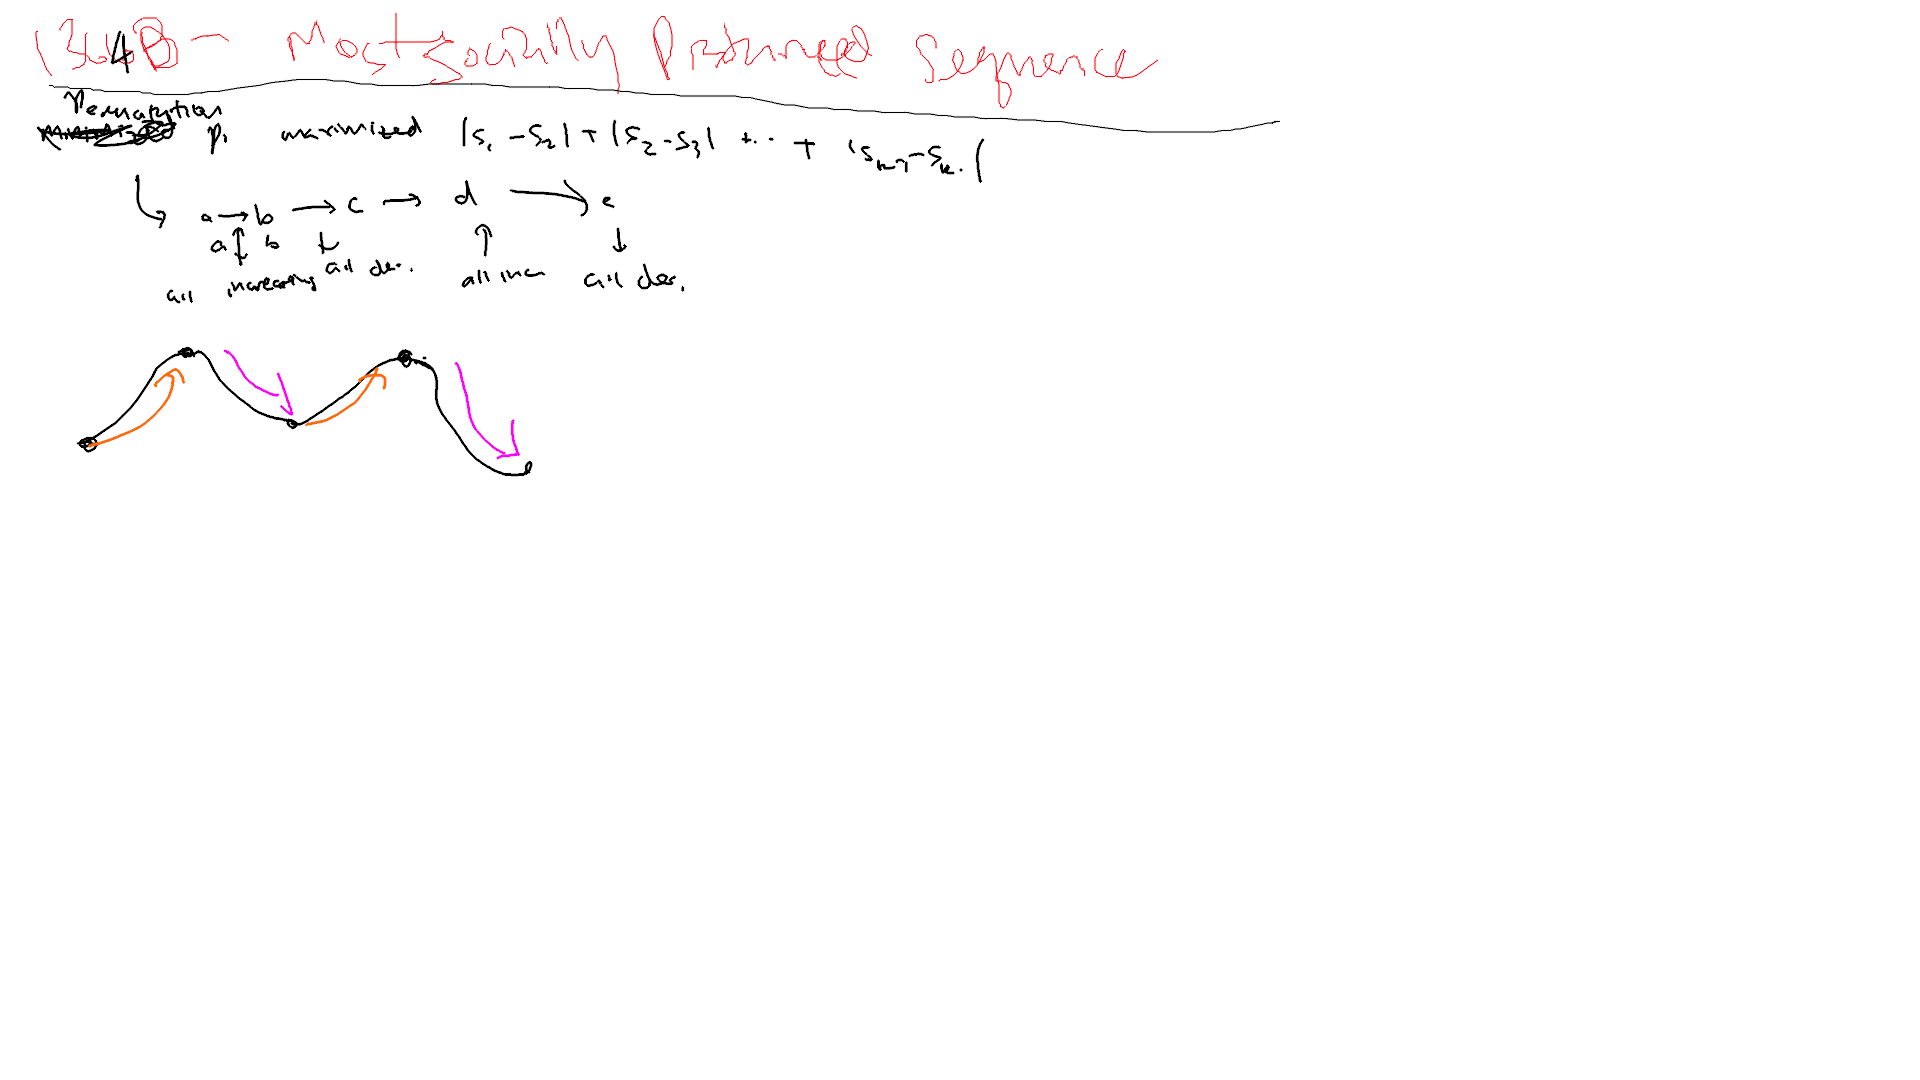 1364B - Most Socially Distanced Sequence
Permutation
p, maximized |s₁ - s₂| + |s₂ - s₃| + ... + |sₖ₋₁ - sₖ|
a → b → c → d → e
a b
all increasing all dec. all incr all dec.